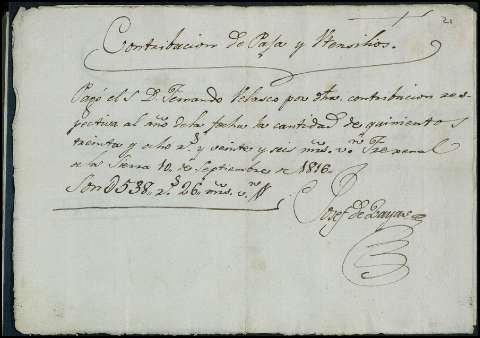 21
Contribucion de Paja y Utensilios.
Pagó el S. D. Fernando Velasco por dha. contribucion res-
pectiva al año de la fecha la cantidad de quinientos
treinta y ocho r.s y veinte y seis mrs. v.n Frexenal
de la Sierra 10, de Septiembre de 1816.
Son 538. r.s 26. mrs. v.n
Josef de Bayas